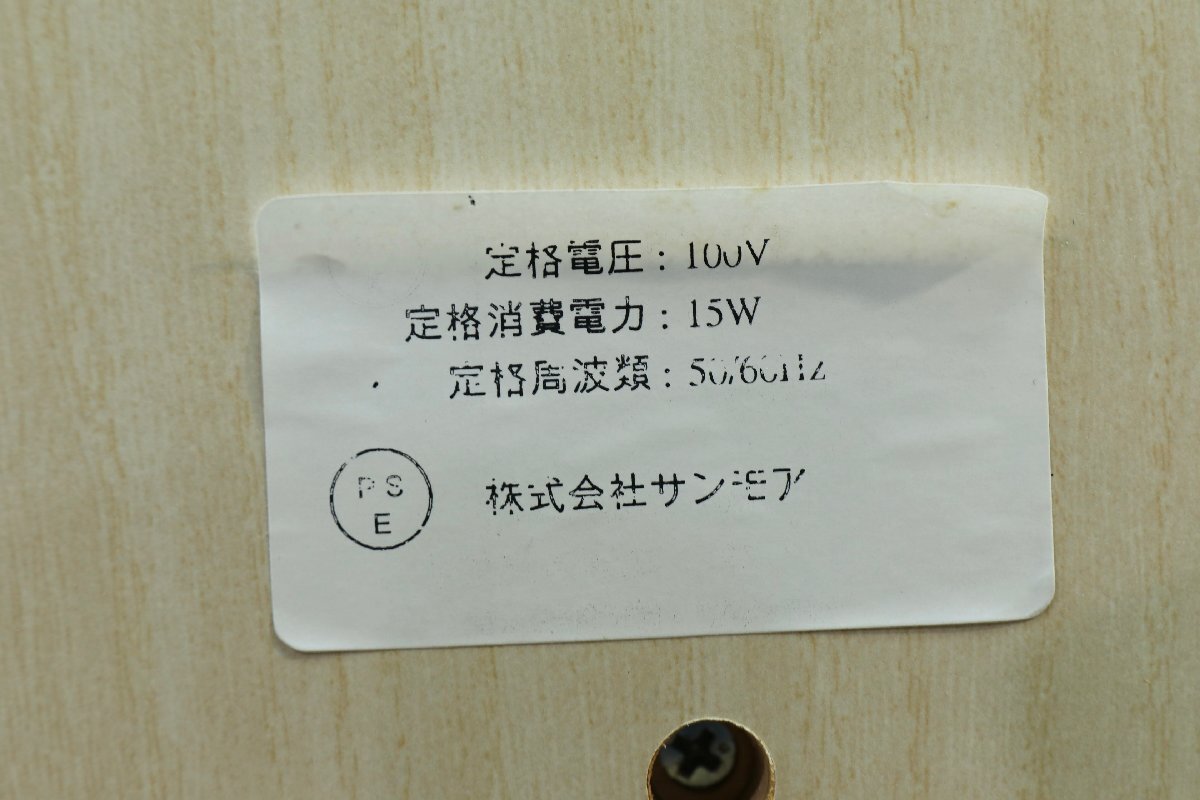 定格電圧：100V
定格消費電力：15W
定格周波類：50/60Hz
PS
E
株式会社サンモア